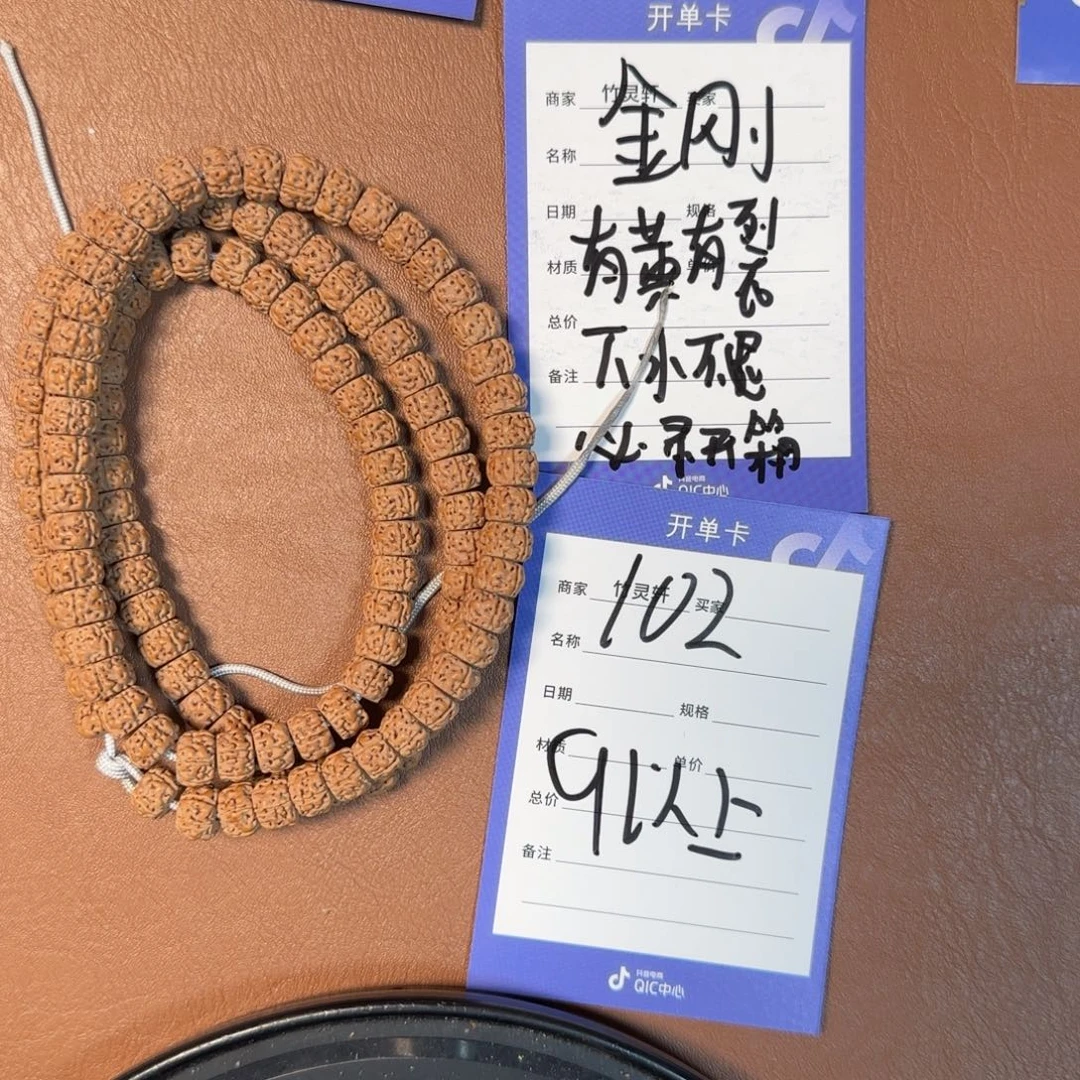 开单卡
商家 竹灵轩 买家
金刚
名称
日期 规格
有黄有裂
材质 单价
总价
不水不退
备注
必录开箱
抖音电商
QIC中心
开单卡
商家 竹灵轩 买家
102
名称
日期 规格
材质 单价
91以上
总价
备注
抖音电商
QIC中心